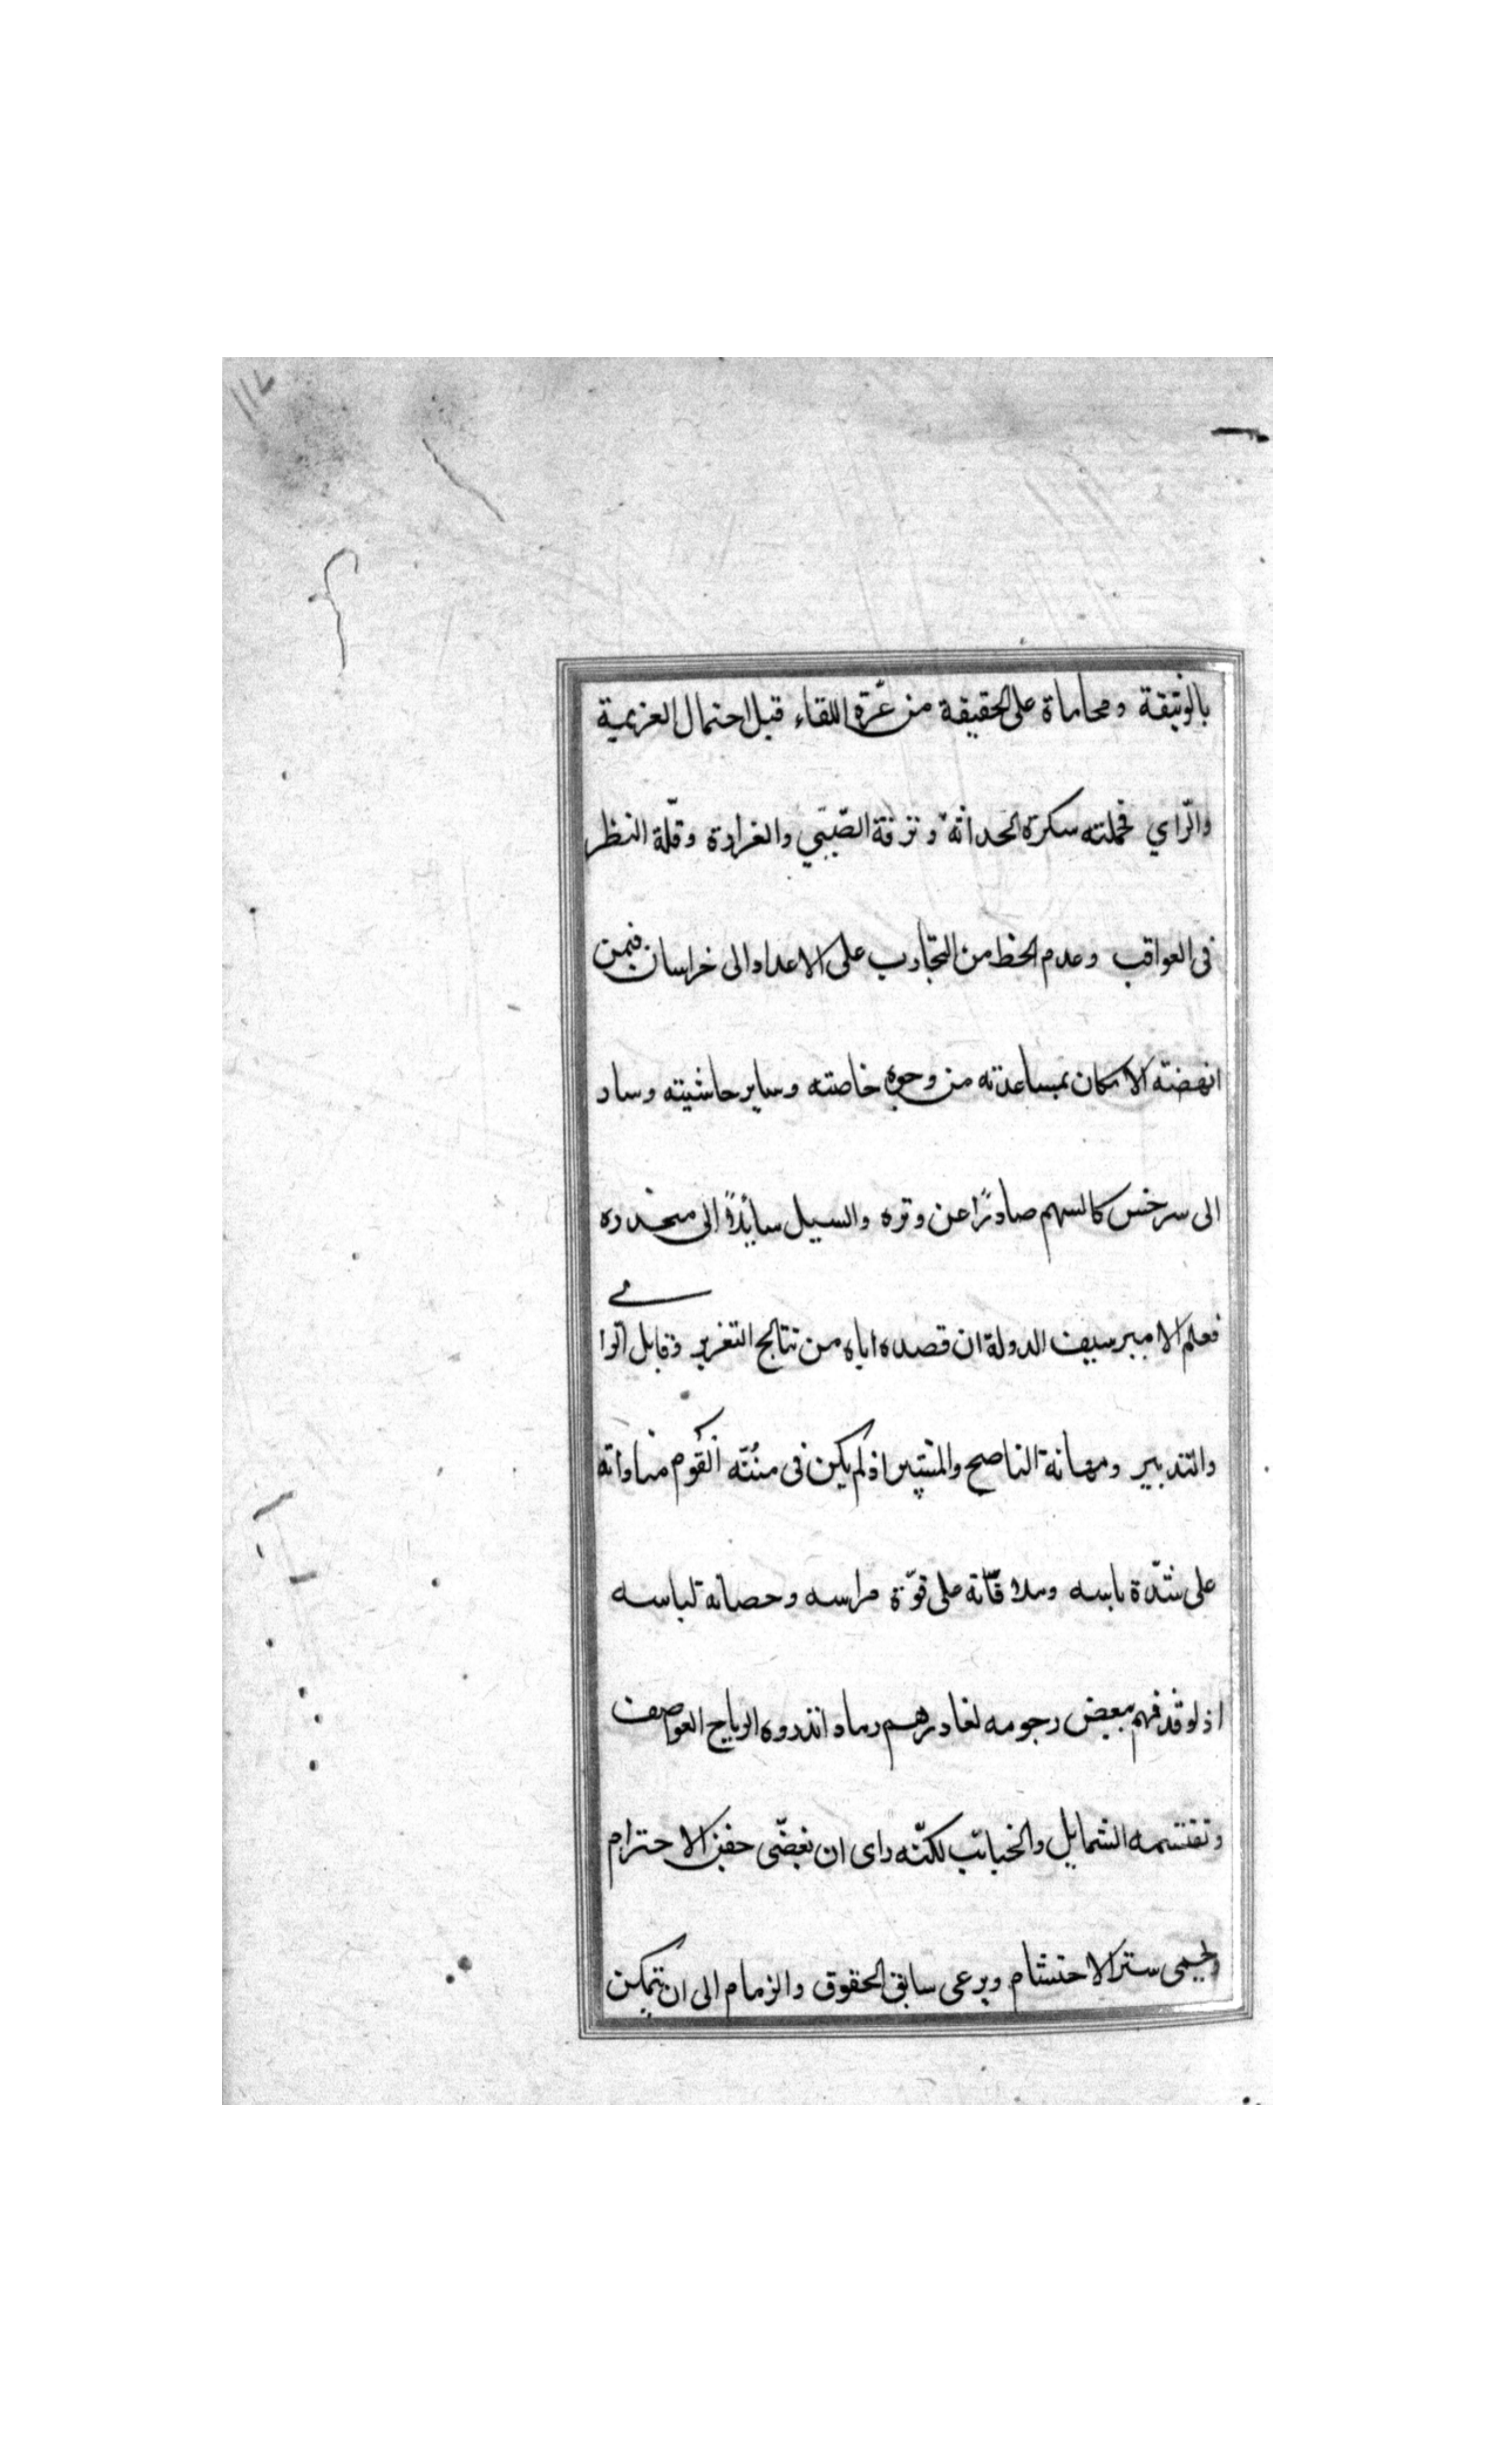 ١١٢
بالوثيقة ومحاماة على الحقيقة من غرّة اللقاء قبل احتمال العزيمة
والرّاي فحملته سكرة الحداثة ونزقة الصّبى والغرارة وقلّة النظر
فى العواقب وعدم الحظ من التجارب على الاعداد الى خراسان فيمن
انهضته الامكان بمساعدته من وجوه خاصته وساير حاشيته وسار
الى سرخس كالسهم صادرًا عن وتره والسيل سائدًا الى منحدره
فعلم الامير سيف الدولة ان قصده اياه من نتائج التغرير وقايل الوا
والتدبير ومهانة الناصح والمشير اذ لم يكن فى منّته ان يقوم مناواته
على شدّة باسه وملاقاته على قوّة مراسه وحصانة لباسه
اذ لو قذفهم ببعض رجومه لغادرهم رمادا تذروه الرياح العواصف
وتقتسمه الشمايل والجنائب لكنّه راى ان يغضّى جفن الاحترام
ويحمى ستر الاحتشام ويرعى سابق الحقوق والزمام الى ان يتمكن